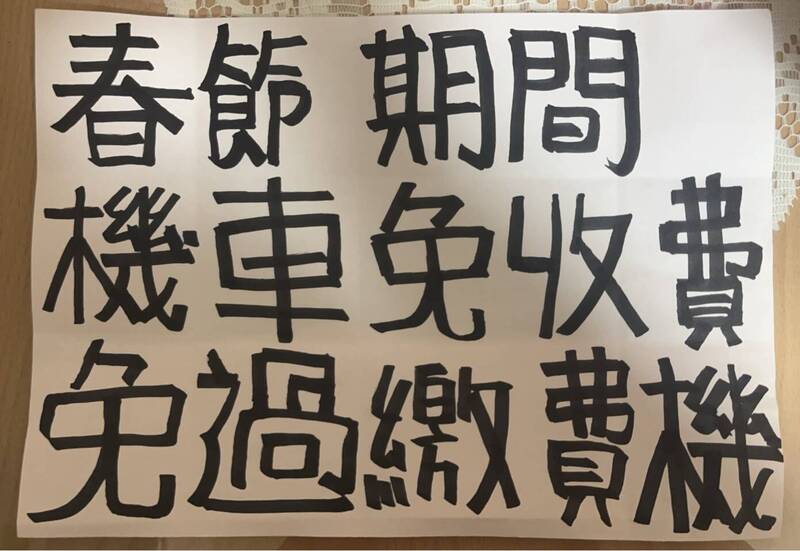 春節期間
機車免收費
免過繳費機